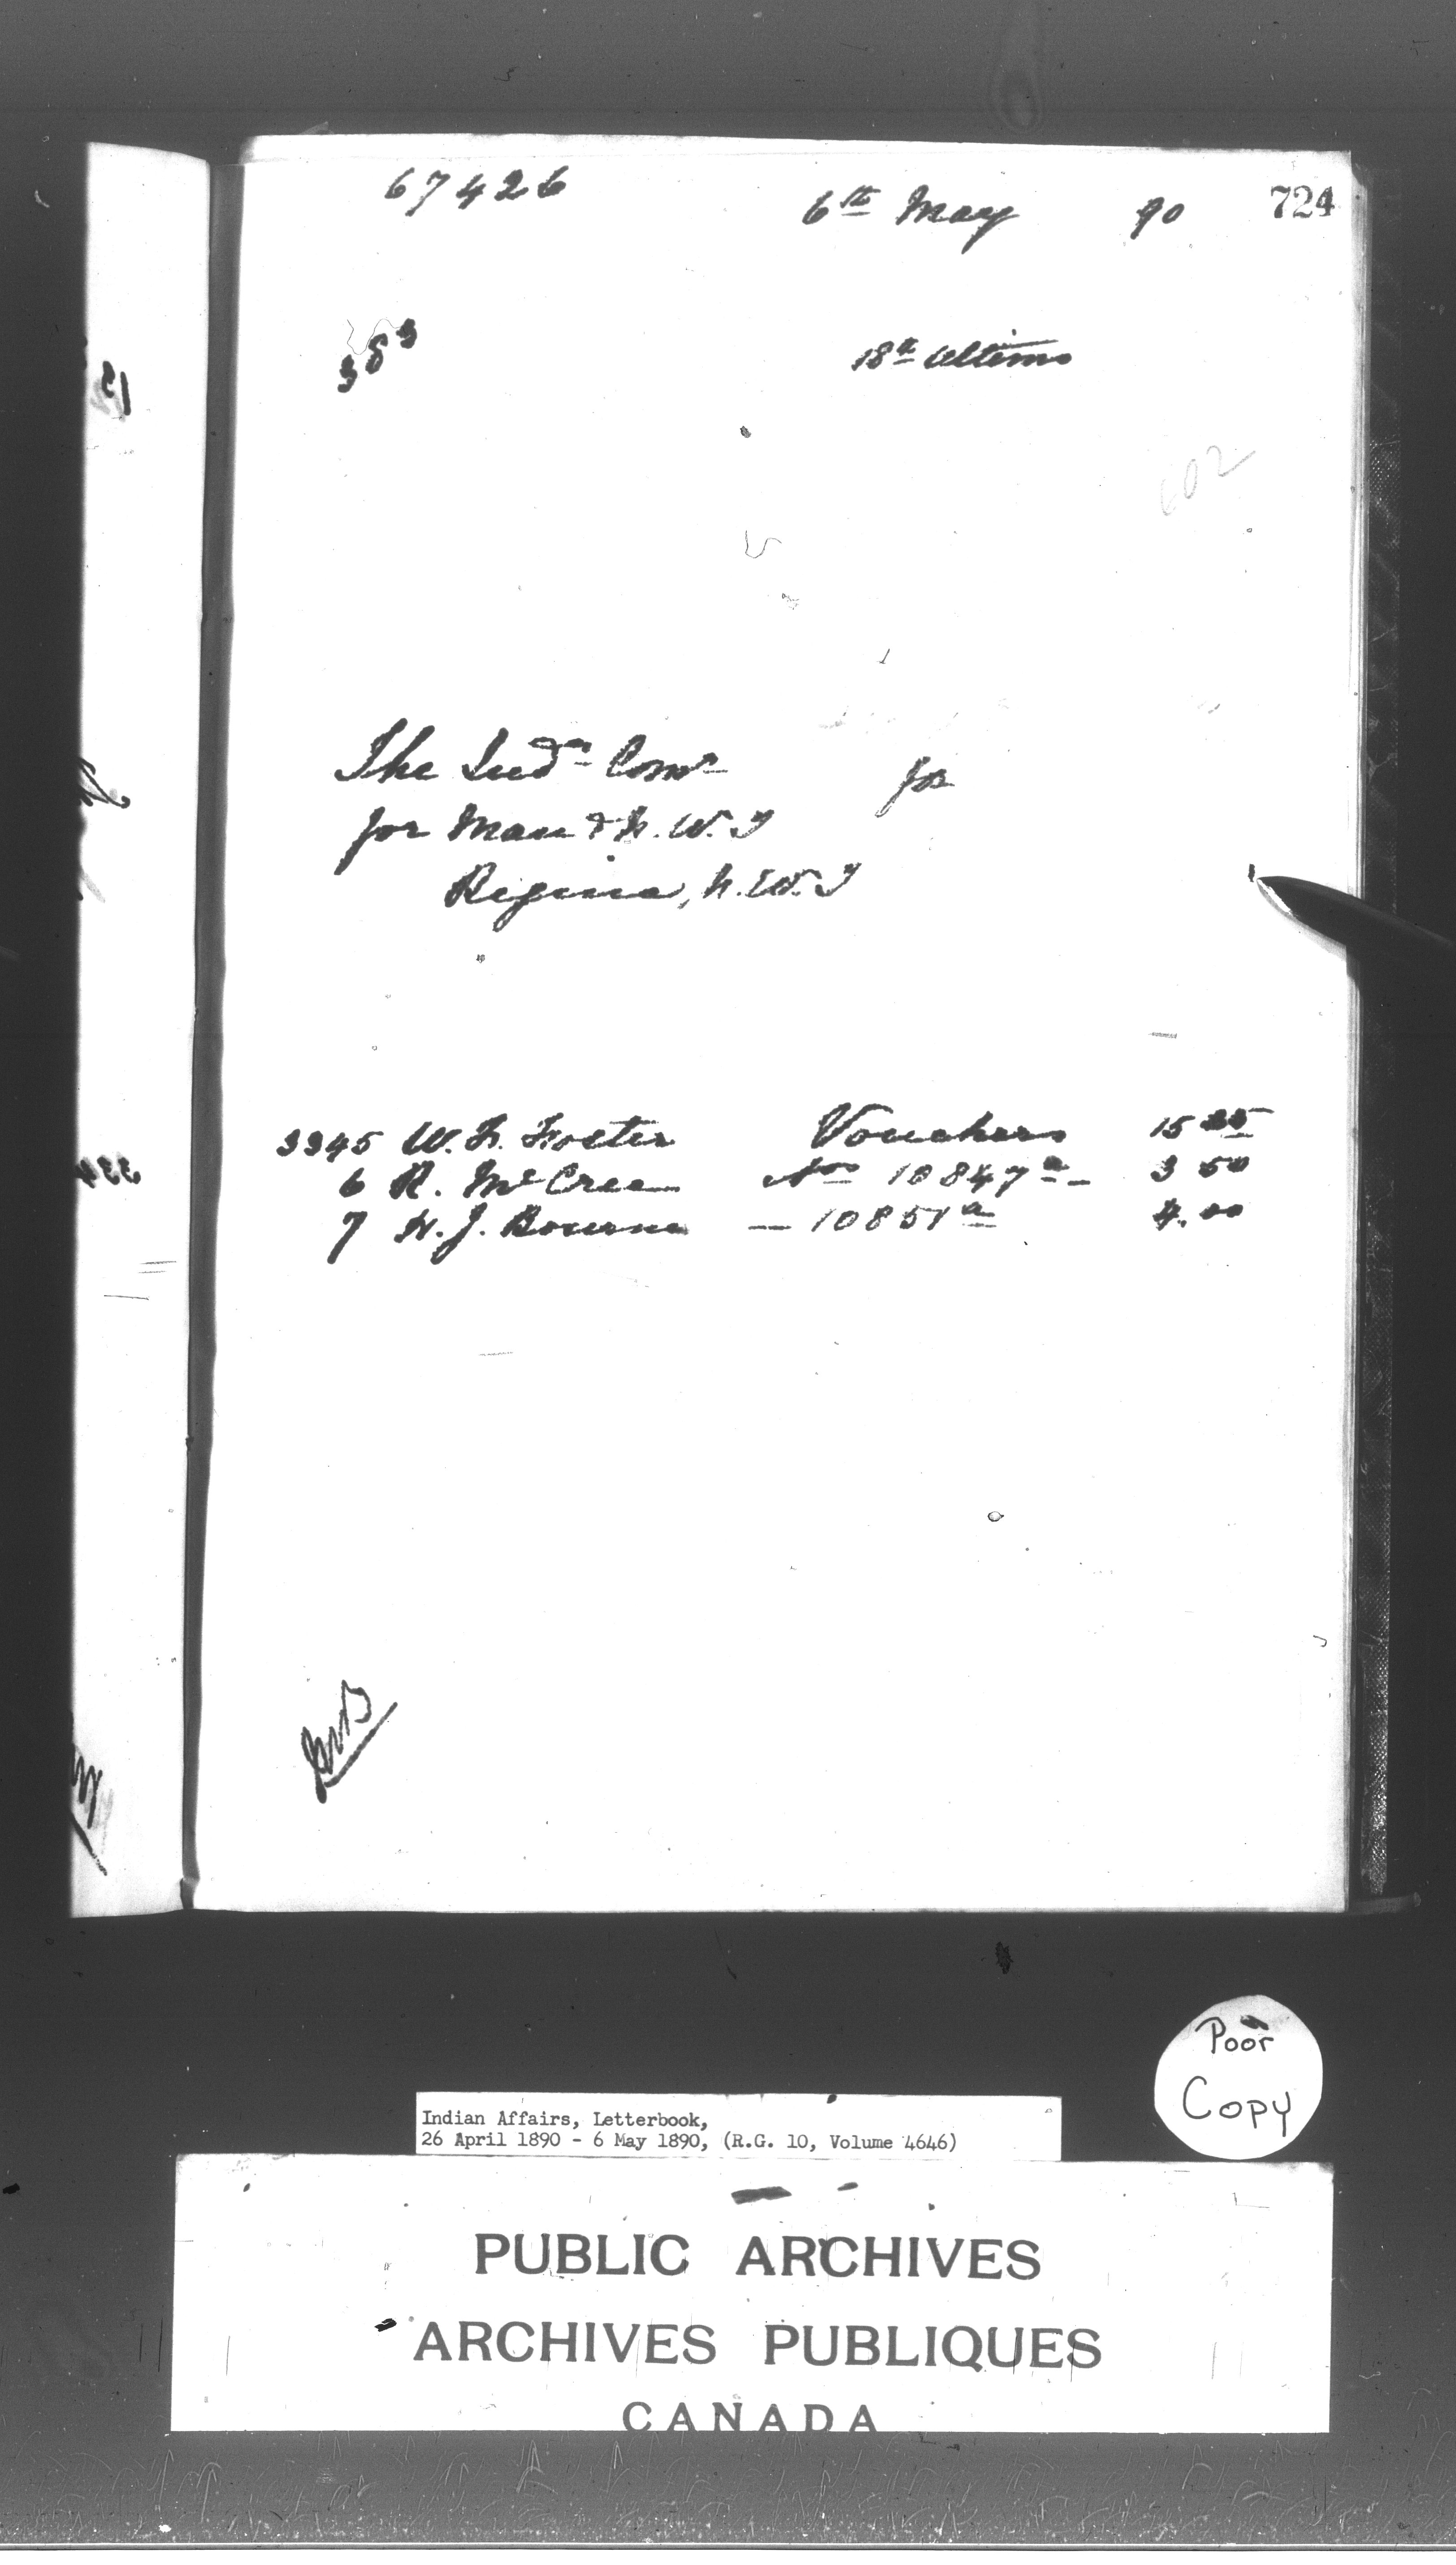 67426
6th May 90 724
383
18th Ultimo
602
The Indn Comr for
for Man & N.W.T
Regina, N.W.T
3345 W. F. Foster Vouchers 15
6 R. McCrea Nos 10847a - 3 50
7 H. J. Bourne — 10851a 4.00
Poor
Copy
Indian Affairs, Letterbook,
26 April 1890 - 6 May 1890, (R.G. 10, Volume 4646)
PUBLIC ARCHIVES
ARCHIVES PUBLIQUES
CANADA